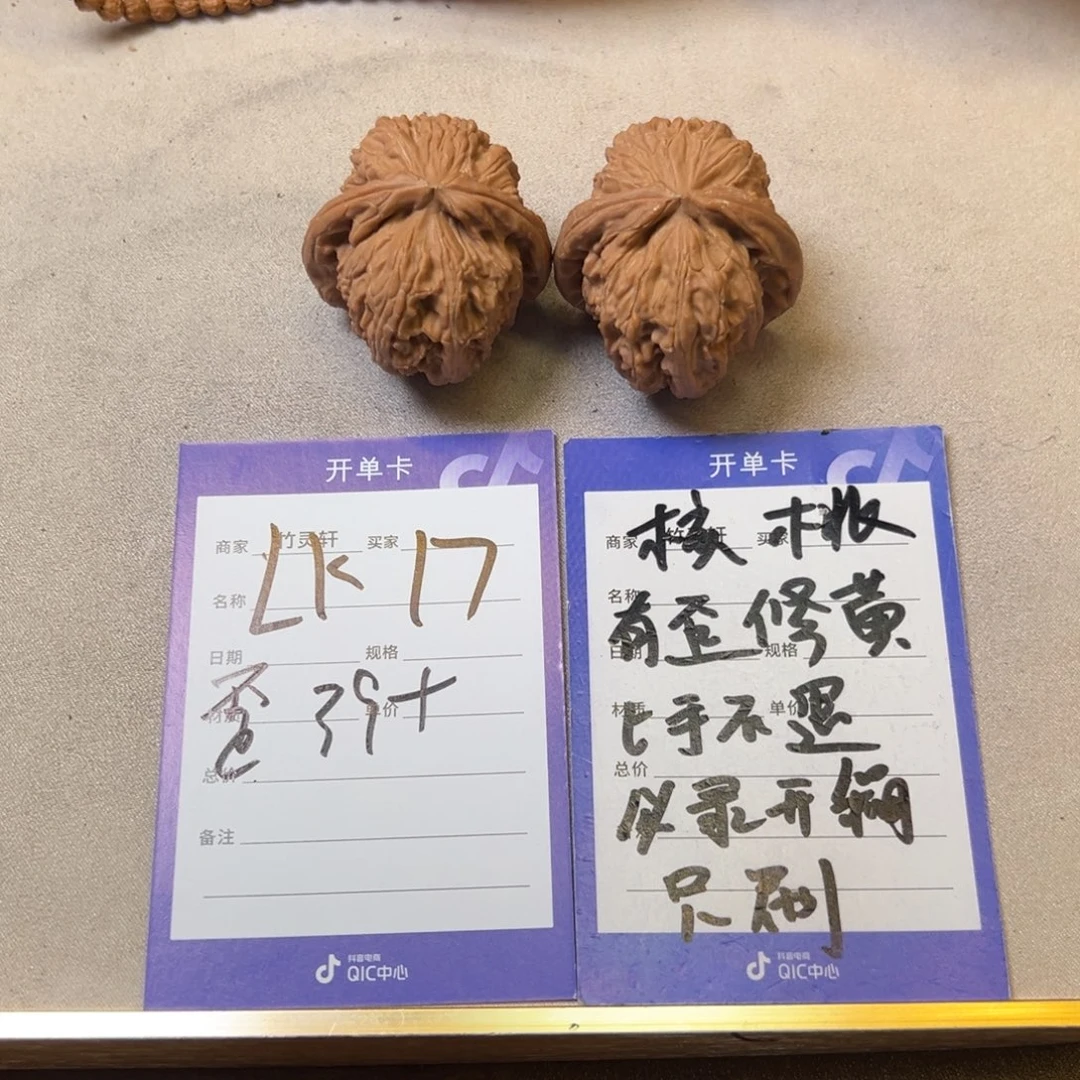 开单卡
商家 竹灵轩 买家
LK 17
名称
日期 规格
歪 39+
材质 单价
总价
备注
抖音电商
QIC中心
开单卡
商家 竹灵轩 买家
核桃
名称
有歪修黄
日期 规格
上手不退
材质 单价
总价
必录开
尺刷
抖音电商
QIC中心